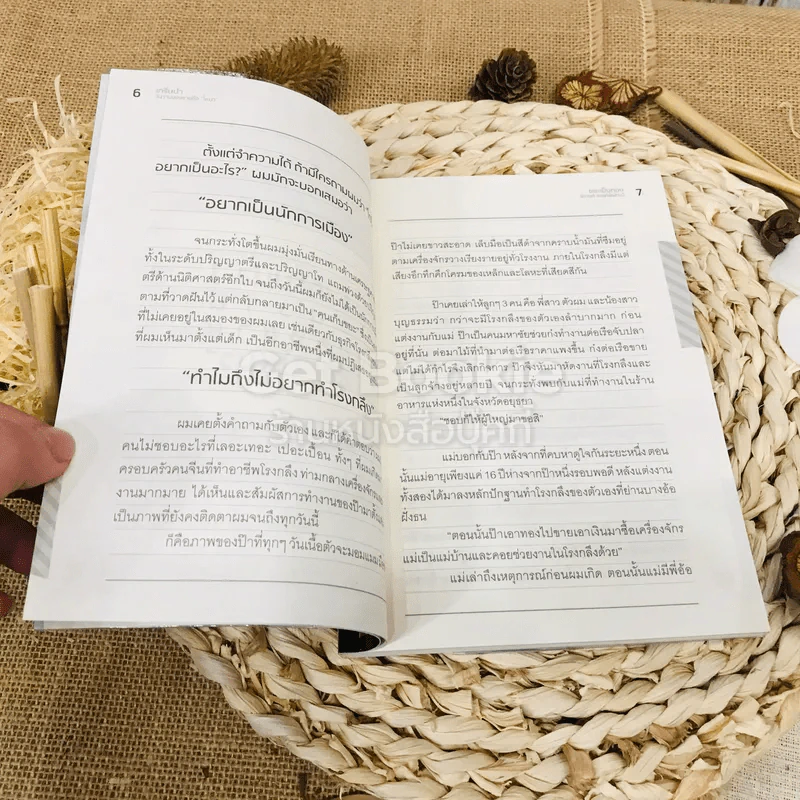 6
ตั้งแต่จำความได้ ถ้ามีใครถามผมว่า
อยากเป็นอะไร?” ผมมักจะบอกเสมอว่า
“อยากเป็นนักการเมือง”
จนกระทั่งโตขึ้นผมมุ่งมั่นเรียนทางด้าน
ทั้งในระดับปริญญาตรีและปริญญาโท แถมพ่วงด้วย
ตรีด้านนิติศาสตร์อีกใบ จนถึงวันนี้ผมก็ยังไม่ได้เป็น
ตามที่วาดฝันไว้ แต่กลับกลายมาเป็น “คนเก็บขยะ”
ที่ไม่เคยอยู่ในสมองของผมเลย เช่นเดียวกับธุรกิจ
ที่ผมเห็นมาตั้งแต่เด็ก เป็นอีกอาชีพหนึ่งที่ผม
“ทำไมถึงไม่อยากทำโรงกลึง”
ผมเคยตั้งคำถามกับตัวเอง และก็ได้คำตอบว่า
คนไม่ชอบอะไรที่เลอะเทอะ เปอะเปื้อน ทั้งๆ ที่ผม
ครอบครัวคนจีนที่ทำอาชีพโรงกลึง ท่ามกลางเครื่องจักร
งานมากมาย ได้เห็นและสัมผัสการทำงานของป๊ามาตั้งแต่
เป็นภาพที่ยังคงติดตาผมจนถึงทุกวันนี้
ก็คือภาพของป๊าที่ทุกๆ วันเนื้อตัวจะมอมแมม
7
ป๊าไม่เคยขาวสะอาด เล็บมือเป็นสีดำจากคราบน้ำมันที่ซึมอยู่
ตามเครื่องจักรวางเรียงรายอยู่ทั่วโรงงาน ภายในโรงกลึงมีแต่
เสียงอึกทึกครึกโครมของเหล็กและโลหะที่เสียดสีกัน
ป๊าเคยเล่าให้ลูกๆ 3 คน คือ พี่สาว ตัวผม และน้องสาว
บุญธรรมว่า กว่าจะมีโรงกลึงของตัวเองลำบากมาก ก่อน
แต่งงานกับแม่ ป๊าเป็นคนมหาชัยช่วยก๋งทำงานต่อเรือจับปลา
อยู่ที่นั่น ต่อมาไม้ที่นำมาต่อเรือราคาแพงขึ้น ก๋งต่อเรือขาย
แต่ไม่ได้กำไรจึงเลิกกิจการ ป๊าจึงหันมาหัดงานที่โรงกลึงและ
เป็นลูกจ้างอยู่หลายปี จนกระทั่งพบกับแม่ที่ทำงานในร้าน
อาหารแห่งหนึ่งในจังหวัดอยุธยา
“ชอบก็ให้ผู้ใหญ่มาขอสิ”
แม่บอกกับป๊า หลังจากที่คบหาดูใจกันระยะหนึ่ง ตอน
นั้นแม่อายุเพียงแค่ 16 ปีห่างจากป๊าหนึ่งรอบพอดี หลังแต่งงาน
ทั้งสองได้มาลงหลักปักฐานทำโรงกลึงของตัวเองที่ย่านบางอ้อ
ฝั่งธน
“ตอนนั้นป๊าเอาทองไปขายเอาเงินมาซื้อเครื่องจักร
แม่เป็นแม่บ้านและคอยช่วยงานในโรงกลึงด้วย”
แม่เล่าถึงเหตุการณ์ก่อนผมเกิด ตอนนั้นแม่มีพี่อ้อ
ร้านหนังสือบุ๊คกี้